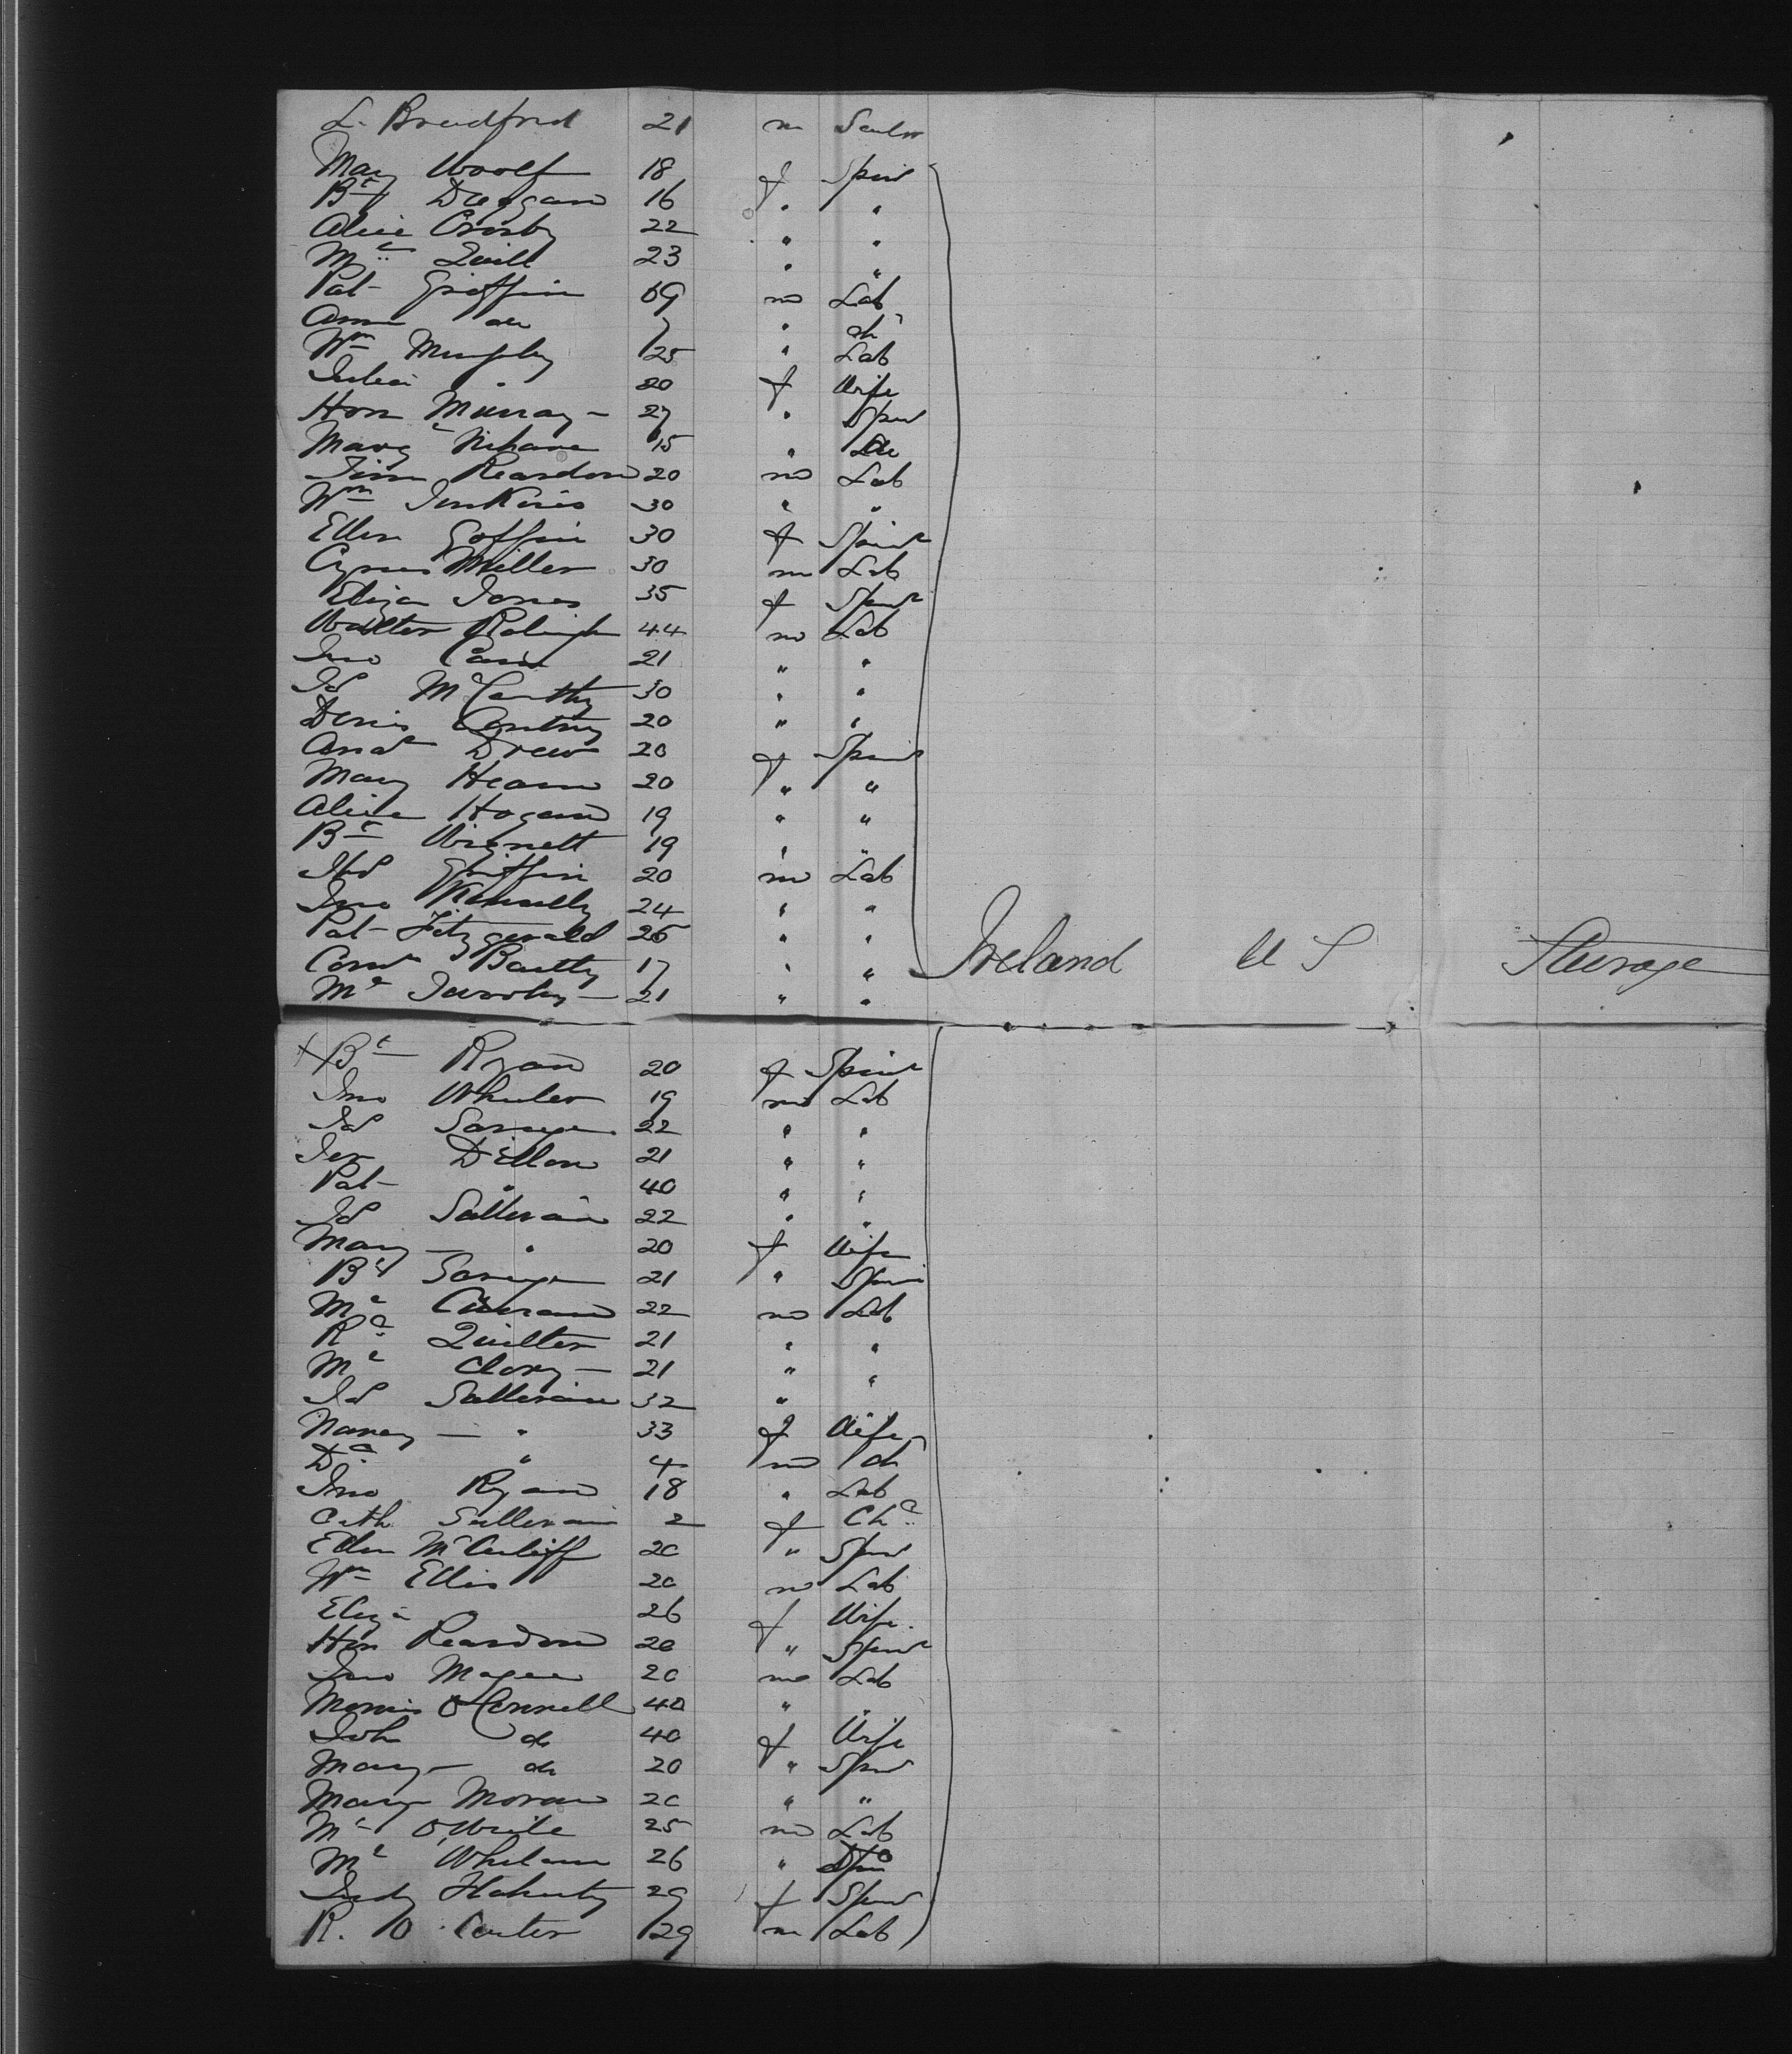 L. Bradford 21 m
Mary Woolf 18 f Spin
Bt Duggan 16 " "
Alice Crosby 22 " "
Mt Quill 23 " "
Pat Griffin 19 m Lab
Ann do 7 " ch
Wm Murphy 25 " Lab
Julia " 20 f Wife
Hon Murray 27 " Spin
Marg Nihane 15 " Do
Tim Reardon 20 m Lab
Wm Jenkins 30 " "
Ellen Goffin 30 f Spinr
Cyrus Miller 30 m Lab
Eliza Jones 35 f Spinr
Walter Raleigh 44 m Lab
Jno Cain 21 " "
Jas McCarthy 30 " "
Denis 20 " "
Drew 20 f Spinr
Mary Hearn 20 " "
Alice Hogan 19 " "
Bt Wignett 19 " "
Griffin 20 m Lab
Jno Kennelly 24 " "
Pat Fitzgerald 25 " "
Corns 17 " "
Ml 21 " "
Ireland U S Steerage
X Bt Ryan 20 f Spinr
Jno Wheeler 19 m Lab
Jas 22 " "
Jer Dillon 21 " "
Pat " 40 " "
Jas Sullivan 22 " "
Mary " 20 f Wife
Bt 21 " Spin
Ml Curran 22 m Lab
Rd Quilter 21 " "
Ml Clory 21 " "
Jas Sullivan 32 "
Nancy " 33 f Wife
Dl " 4 m ch
Jno Ryan 18 " Lab
Cath Sullivan 2 f Chd
Ellen McAuliff 20 " Spin
Wm Ellis 20 m Lab
Eliza 26 f Wife
Hon Reardon 20 " Spinr
Jno Magee 20 m Lab
Morris O'Connell 40 " "
Joh do 40 f Wife
Mary do 20 " Spin
Mary Moran 20 " "
Ml 25 m Lab
Ml Whelan 26 "
Judy Flaherty 29 f Spin
R. O. Carter 29 m Lab